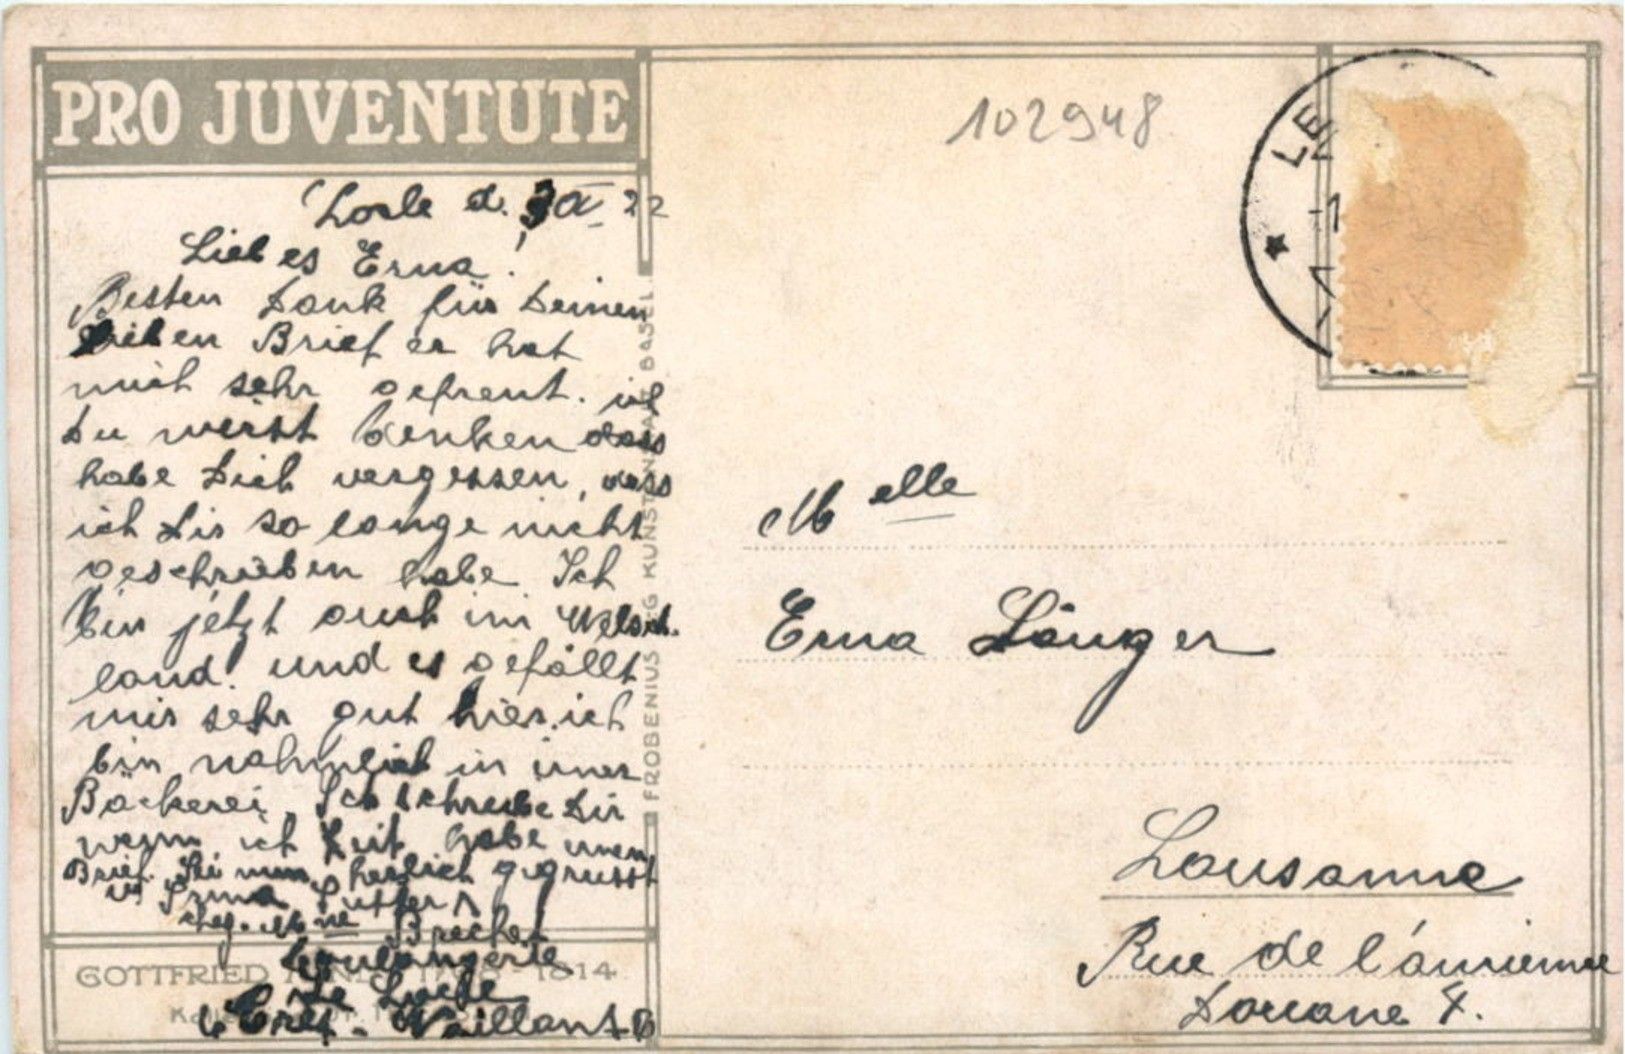 PRO JUVENTUTE
102948
LE
Locle d. 3 IX 22
Liebes Erna!
Besten Dank für Deinen
lieben Brief er hat
mich sehr gefreut. ich
Du wirst denken dass
habe Dich vergessen, dass
ich Dir so lange nicht
geschrieben habe Ich
bin jetzt auch im Welsch-
land. und es gefällt
mir sehr gut hier. ich
bin nähmlich in einer
Bäckerei, Ich schreibe Dir
wenn ich Zeit habe einen
Brief. Sei nun herlich gegrüsst
Irma
chez. Mme
Boulangerie
Le Locle
FROBENIUS A-G KUNSTANSTALT BASEL
GOTTFRIED 1814
Melle
Erna Länger
Lausanne
Rue de l'ancienne
Douane 7.